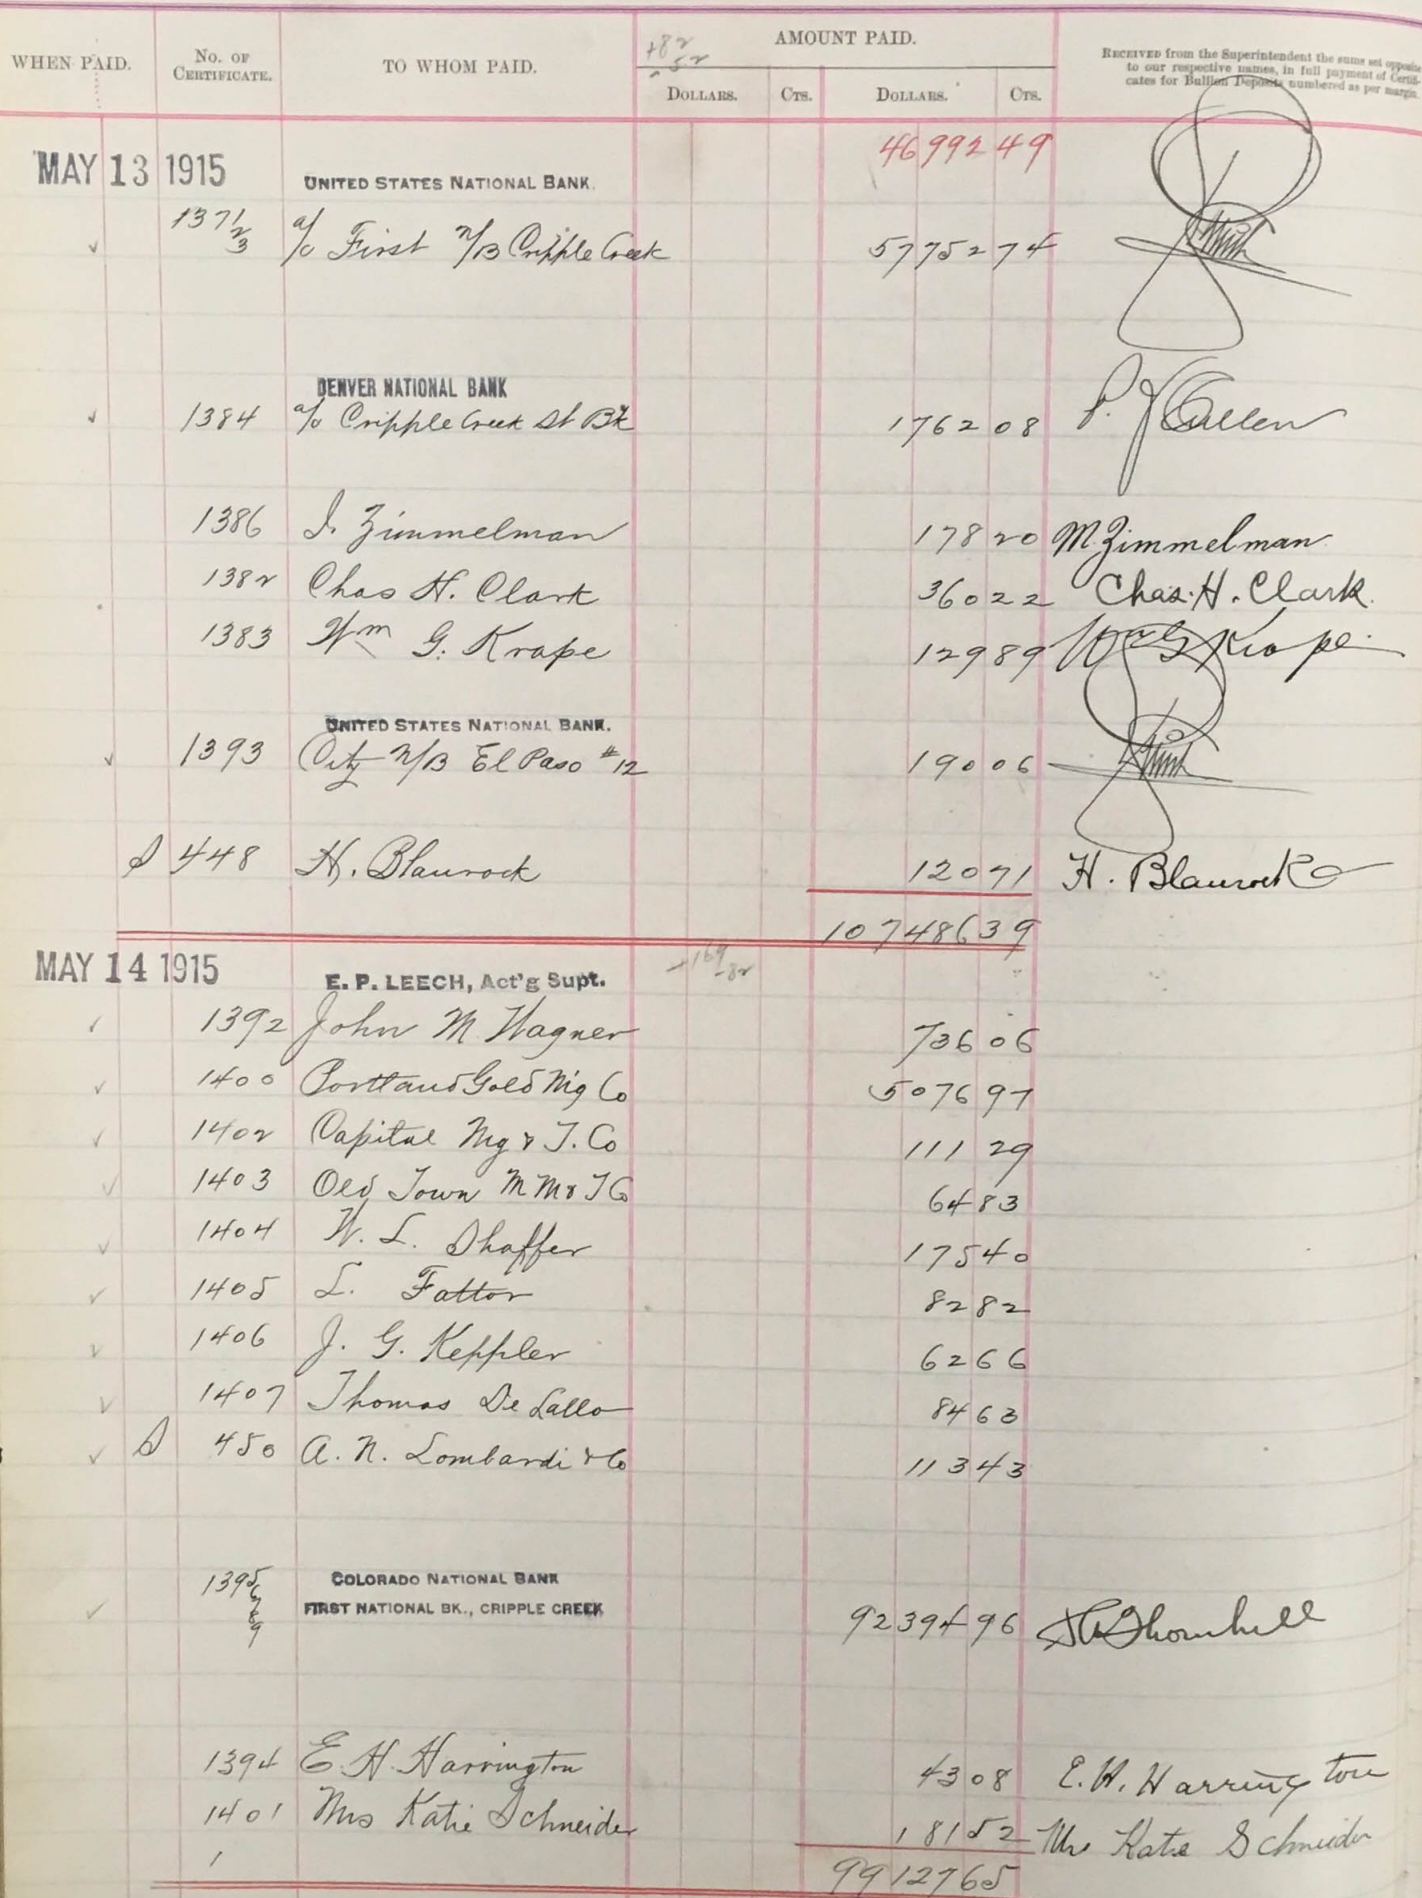 WHEN PAID. No. OF CERTIFICATE. TO WHOM PAID. AMOUNT PAID. RECEIVED from the Superintendent the sums set opposite
to our respective names, in full payment of Certifi-
cates for Bullion Deposits numbered as per margin.
DOLLARS. CTS. DOLLARS. CTS.
46992 49
MAY 13 1915 UNITED STATES NATIONAL BANK.
1371/2/3 a/c First N/B Cripple Creek 57752 74
DENVER NATIONAL BANK
1384 a/c Cripple Creek St Bk 1762 08 P. J. Cullen
1386 I. Zimmelman 178 20 M. Zimmelman
1382 Chas H. Clark 360 22 Chas. H. Clark.
1383 Wm G. Krape 129 89 Wm G Krape
UNITED STATES NATIONAL BANK.
1393 City N/B El Paso #12 190 06
S 448 H. Blaurock 120 71 H. Blaurock
107486 39
MAY 14 1915 E. P. LEECH, Act'g Supt.
1392 John M. Wagner 736 06
1400 Portland Gold M'g Co 5076 97
1402 Capital Mg & T. Co 111 29
1403 Old Town M M & T Co 64 83
1404 W. L. Shaffer 175 40
1405 L. Fattor 82 82
1406 J. G. Keppler 62 66
1407 Thomas De Lallo 84 63
S 450 A. N. Lombardi & Co 113 43
COLORADO NATIONAL BANK
1395/6/7/8/9 FIRST NATIONAL BK., CRIPPLE CREEK 92394 96 Thornhill
1394 E. H. Harrington 43 08 E. H. Harrington
1401 Mrs Katie Schneider 181 52 Mrs Katie Schneider
99127 65